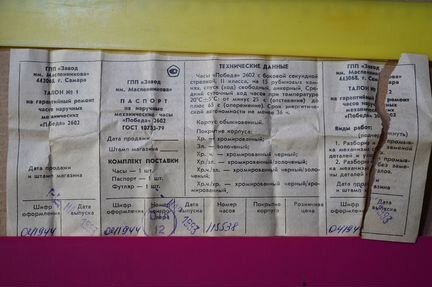 ГПП «Завод
им. Масленникова»
443068, г. Самара
ТАЛОН № 1
на гарантийный ремонт
часов наручных
механических
«Победа» 2602
Дата продажи
и штамп магазина
Шифр оформления
Дата выпуска
041944
ГПП «Завод
им. Масленникова»
443068, г. Самара
ПАСПОРТ
на наручные
механические часы
«Победа» 2602
ГОСТ 10733-79
Дата продажи
Штамп магазина
КОМПЛЕКТ ПОСТАВКИ
Часы — 1 шт.
Паспорт — 1 шт.
Футляр — 1 шт.
Шифр оформления
Номер
041944
12
ТЕХНИЧЕСКИЕ ДАННЫЕ
Часы «Победа» 2602 с боковой секундной
стрелкой, II класса, на 15 рубиновых кам-
нях, спуск (ход) свободный, анкерный. Сред-
ний суточный ход часов при температуре
20°С±5°С: от минус 25 с (отставание) до
плюс 65 с (опережение). Срок энергетичес-
кой автономности не менее 36 ч.
Корпус обыкновенный.
Покрытие корпуса:
Хр. — хромированный;
Зл. — золоченый;
Хр. ч. — хромированный черный;
Хр./зл. — хромированный — золоченый;
Хр.ч./зл. — хромированный черный — золоченый;
Хр./хр.ч. — хромированный/хромированный черный.
Дата выпуска
Номер часов
Покрытие корпуса
Розничная цена
1993
115538
ГПП «Завод
им. Масленникова»
443068, г. Самара
ТАЛОН № 2
на гарантийный ремонт
часов наручных
механических
«Победа» 2602
Виды работ
1. Разборка
2. Разборка
Дата продажи
и штамп магазина
Шифр оформления
Дата выпуска
041944